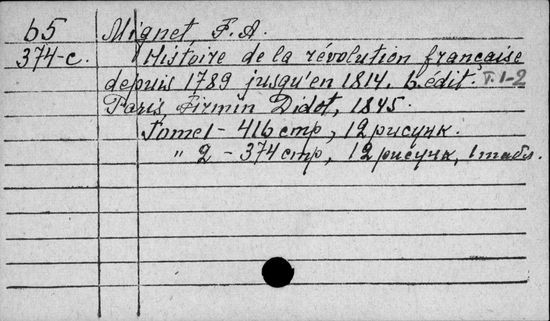 b5 Mignet, F. A.
374-c. Histoire de la révolution française
depuis 1789 jusqu'en 1814. 6 édit. T. 1-2
Paris, Firmin Didot, 1845.
Tome 1 - 416 стр, 12 рисунк.
" 2 - 374 стр, 12 рисунк, 1 табл.